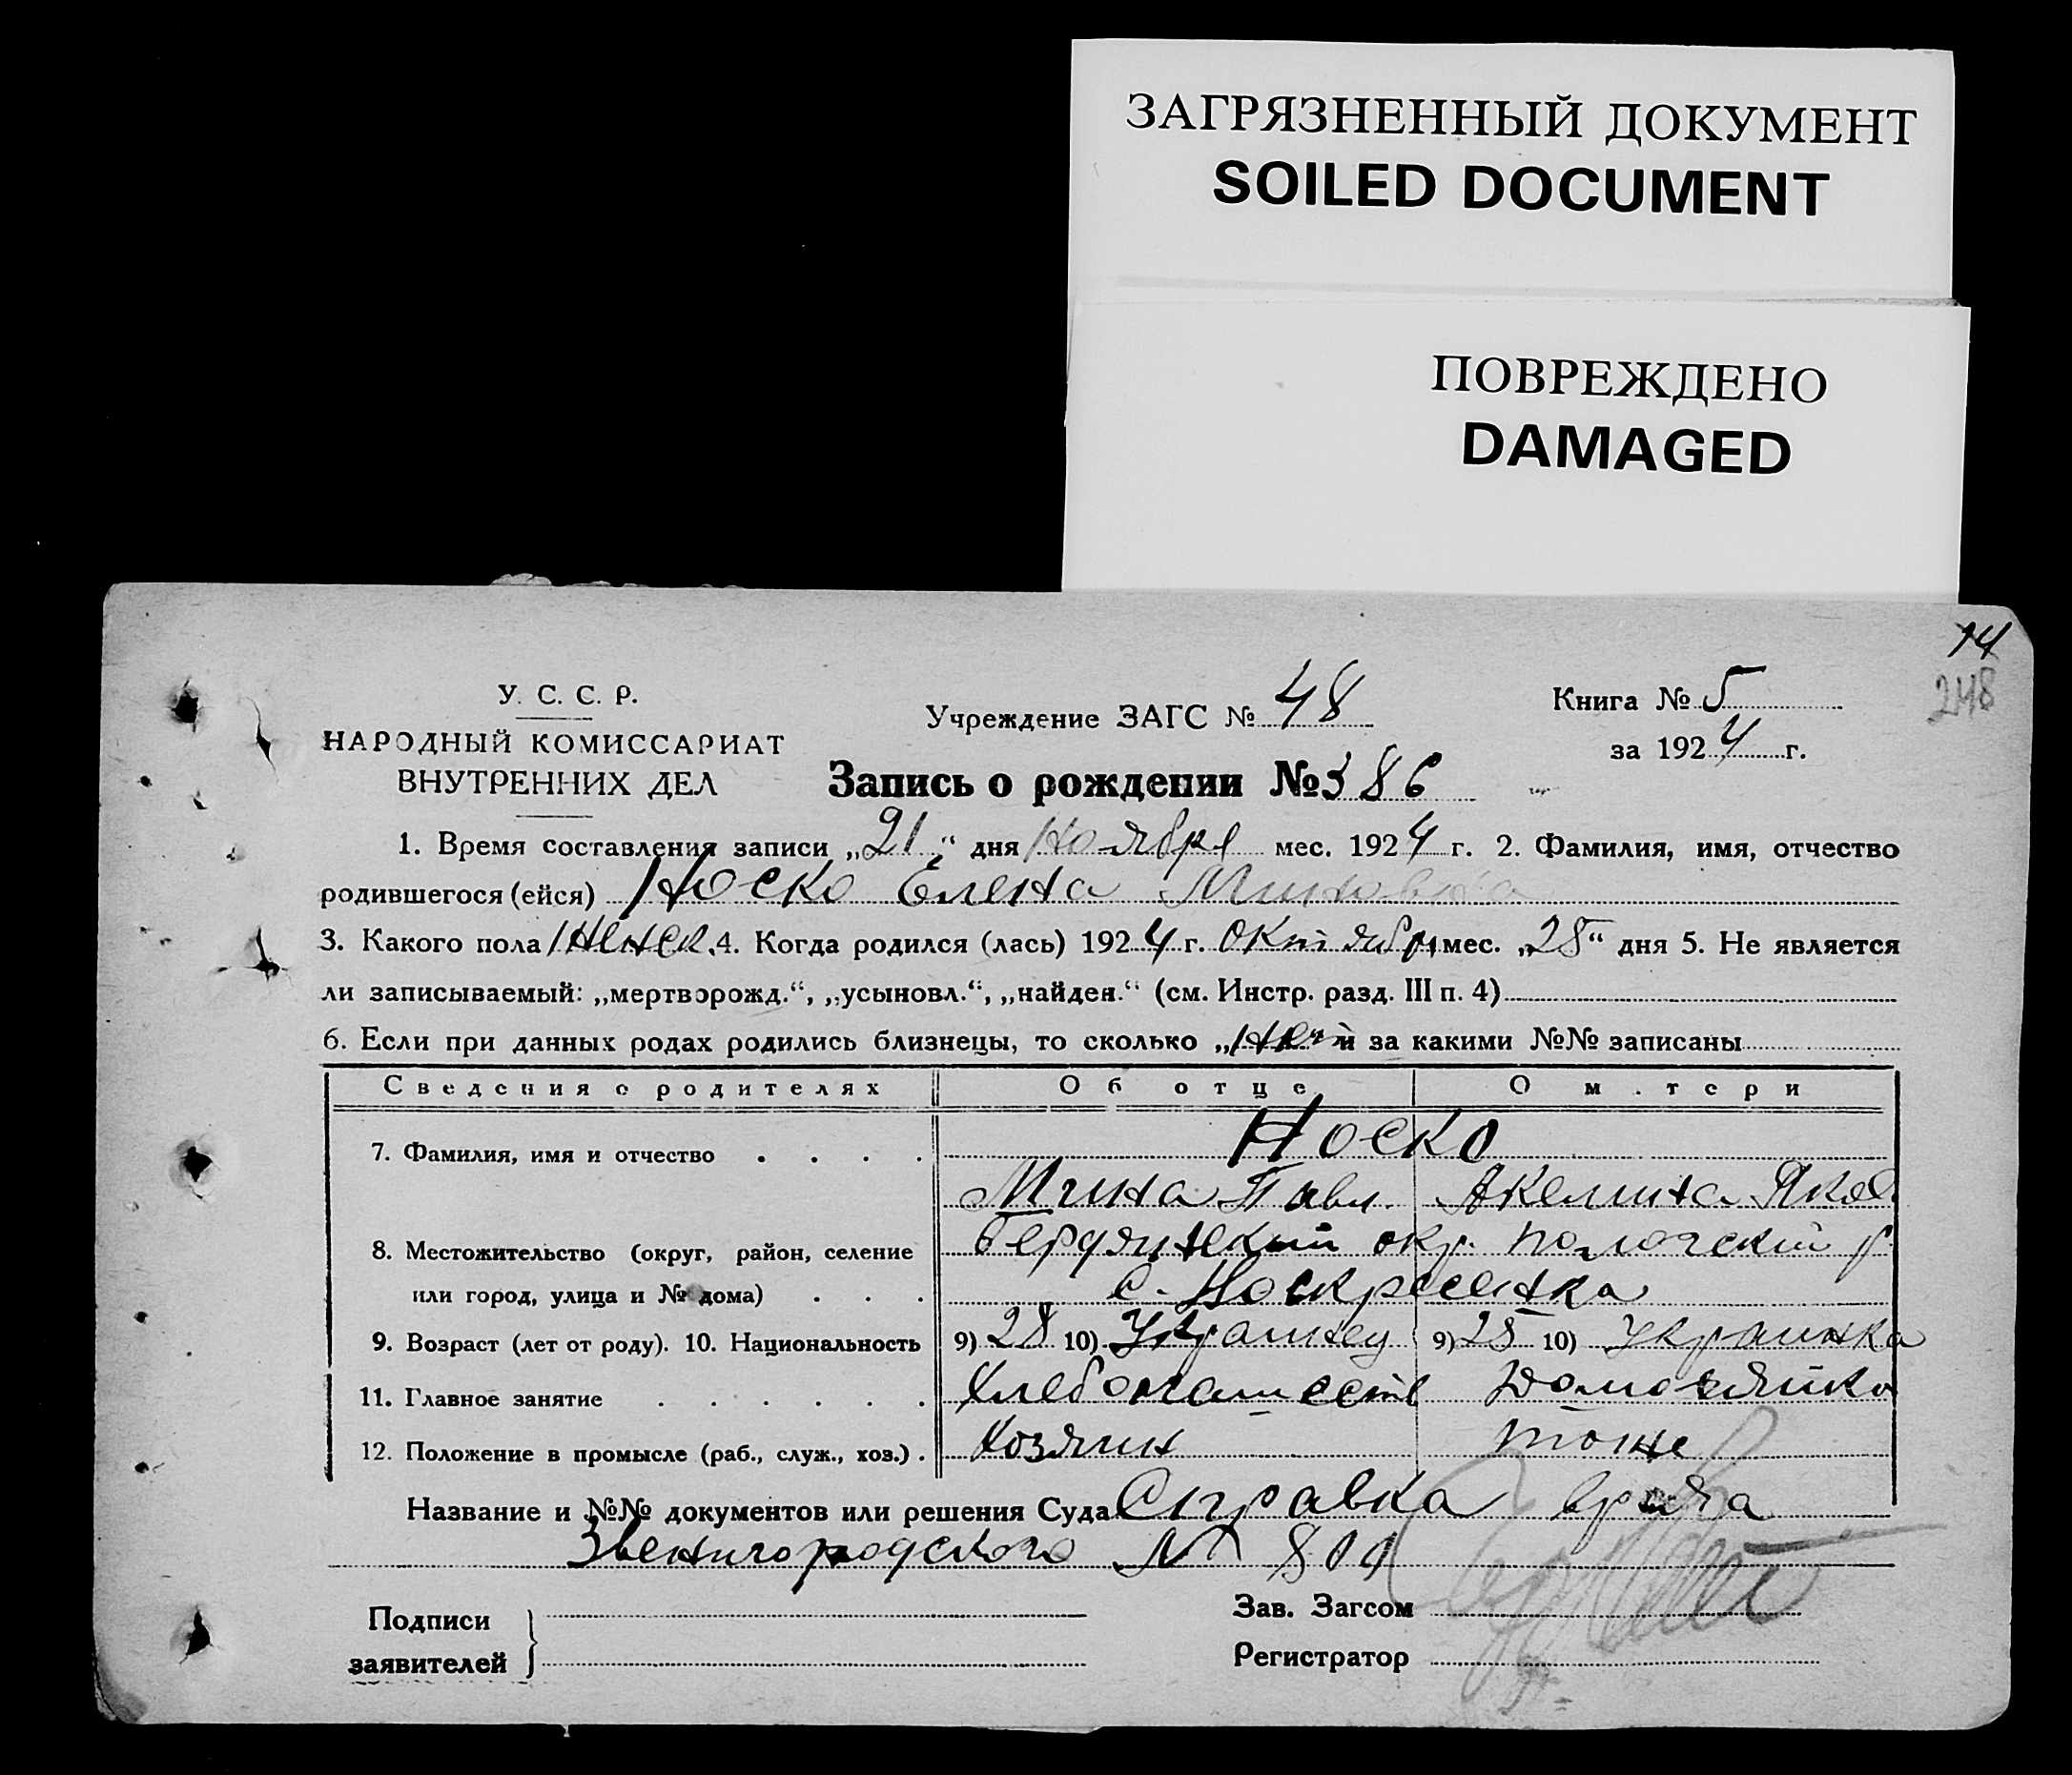 ЗАГРЯЗНЕННЫЙ ДОКУМЕНТ
SOILED DOCUMENT
ПОВРЕЖДЕНО
DAMAGED
14
248
У. С. С. Р.
НАРОДНЫЙ КОМИССАРИАТ
ВНУТРЕННИХ ДЕЛ
Учреждение ЗАГС № 48
Книга № 5
за 1924 г.
Запись о рождении № 386
1. Время составления записи „21“ дня Ноября мес. 1924 г. 2. Фамилия, имя, отчество
родившегося (ейся) Носко Елена Миновна
3. Какого пола женск. 4. Когда родился (лась) 1924 г. октября мес. „25“ дня 5. Не является
ли записываемый: „мертворожд.“, „усыновл.“, „найден.“ (см. Инстр. разд. III п. 4)
6. Если при данных родах родились близнецы, то сколько „нет“ и за какими №№ записаны
Сведения о родителях Об отце О м.тери
7. Фамилия, имя и отчество Носко
Мина Павл. Акелина Яков
8. Местожительство (округ, район, селение Бердянский окр. Пологский р.
или город, улица и № дома) с. Воскресенка
9. Возраст (лет от роду). 10. Национальность 9) 28 10) Украинец 9) 25 10) Украинка
11. Главное занятие Хлебопашеств Домохозяйка
12. Положение в промысле (раб., служ., хоз.) Хозяин тоже
Название и №№ документов или решения Суда Справка врача
Звенигородского № 801
Подписи
заявителей
Зав. Загсом
Регистратор